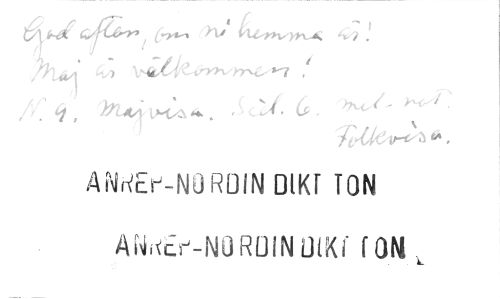 God afton, om ni hemma är!
Maj är välkommen!
N. 9. Majvisa. Sid. 6. mel. not.
Folkvisa.
ANREP-NORDIN DIKT TON
ANREP-NORDIN DIKT TON